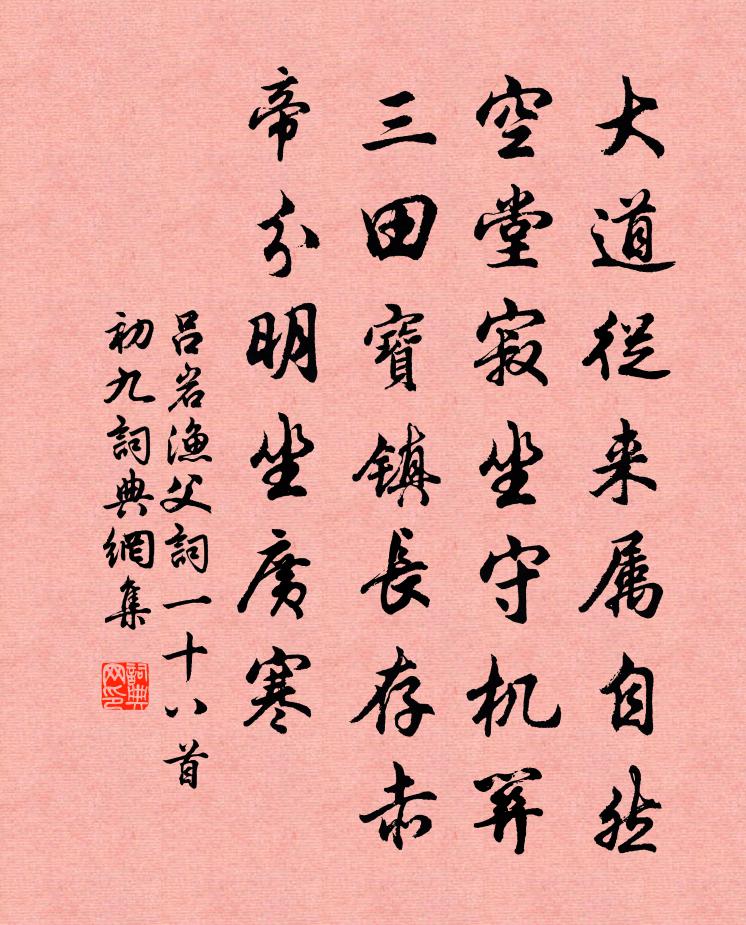 大道從来属自然
空堂寂坐守机關
三田寶镇長存赤
帝分明坐廣寒
吕岩漁父詞一十八首
初九詞典網集
詞典网印